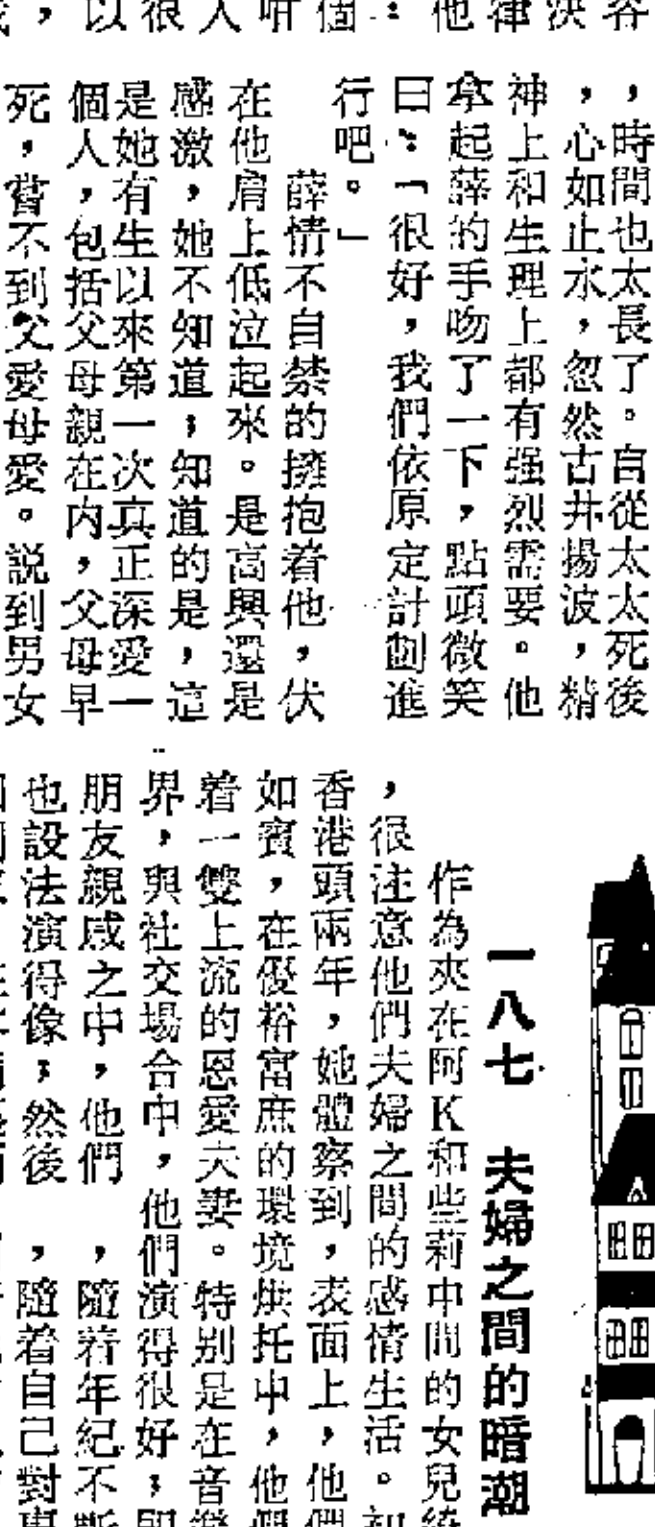 容
決
律
他
：
個
咁
人
很
以
，
，時間也太長了。自從太太死後
，心如止水，忽然古井揚波，精
神上和生理上都有强烈需要。他
拿起薛的手吻了一下，點頭微笑
曰：「很好，我們依原定計劃進
行吧。」
薛情不自禁的擁抱着他，伏
在他肩上低泣起來。是高興還是
感激，她不知道；知道的是，這
是她有生以來第一次真正深愛一
個人，包括父母親在内，父母早
死，嘗不到父愛母愛。説到男女
一八七　夫婦之間的暗潮
作為夾在阿K和些莉中間的女兒
，很注意他們夫婦之間的感情生活。初
香港頭兩年，她體察到，表面上，他們
如賓，在優裕富庶的環境烘托中，他們
着一雙上流的恩愛夫妻。特别是在音樂
界，與社交場合中，他們演得很好；即
朋友親戚之中，他們
也設法演得像；然後
，隨着年紀不斷
，隨着自己對事